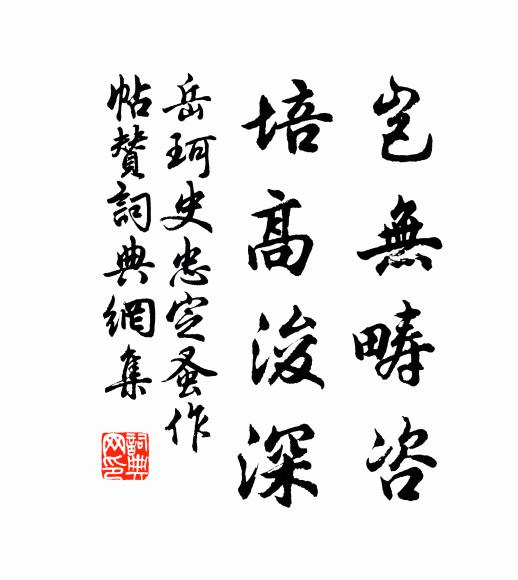 豈無疇咨
培高浚深
岳珂史忠定蚤作
帖贊詞典網集
詞典網印